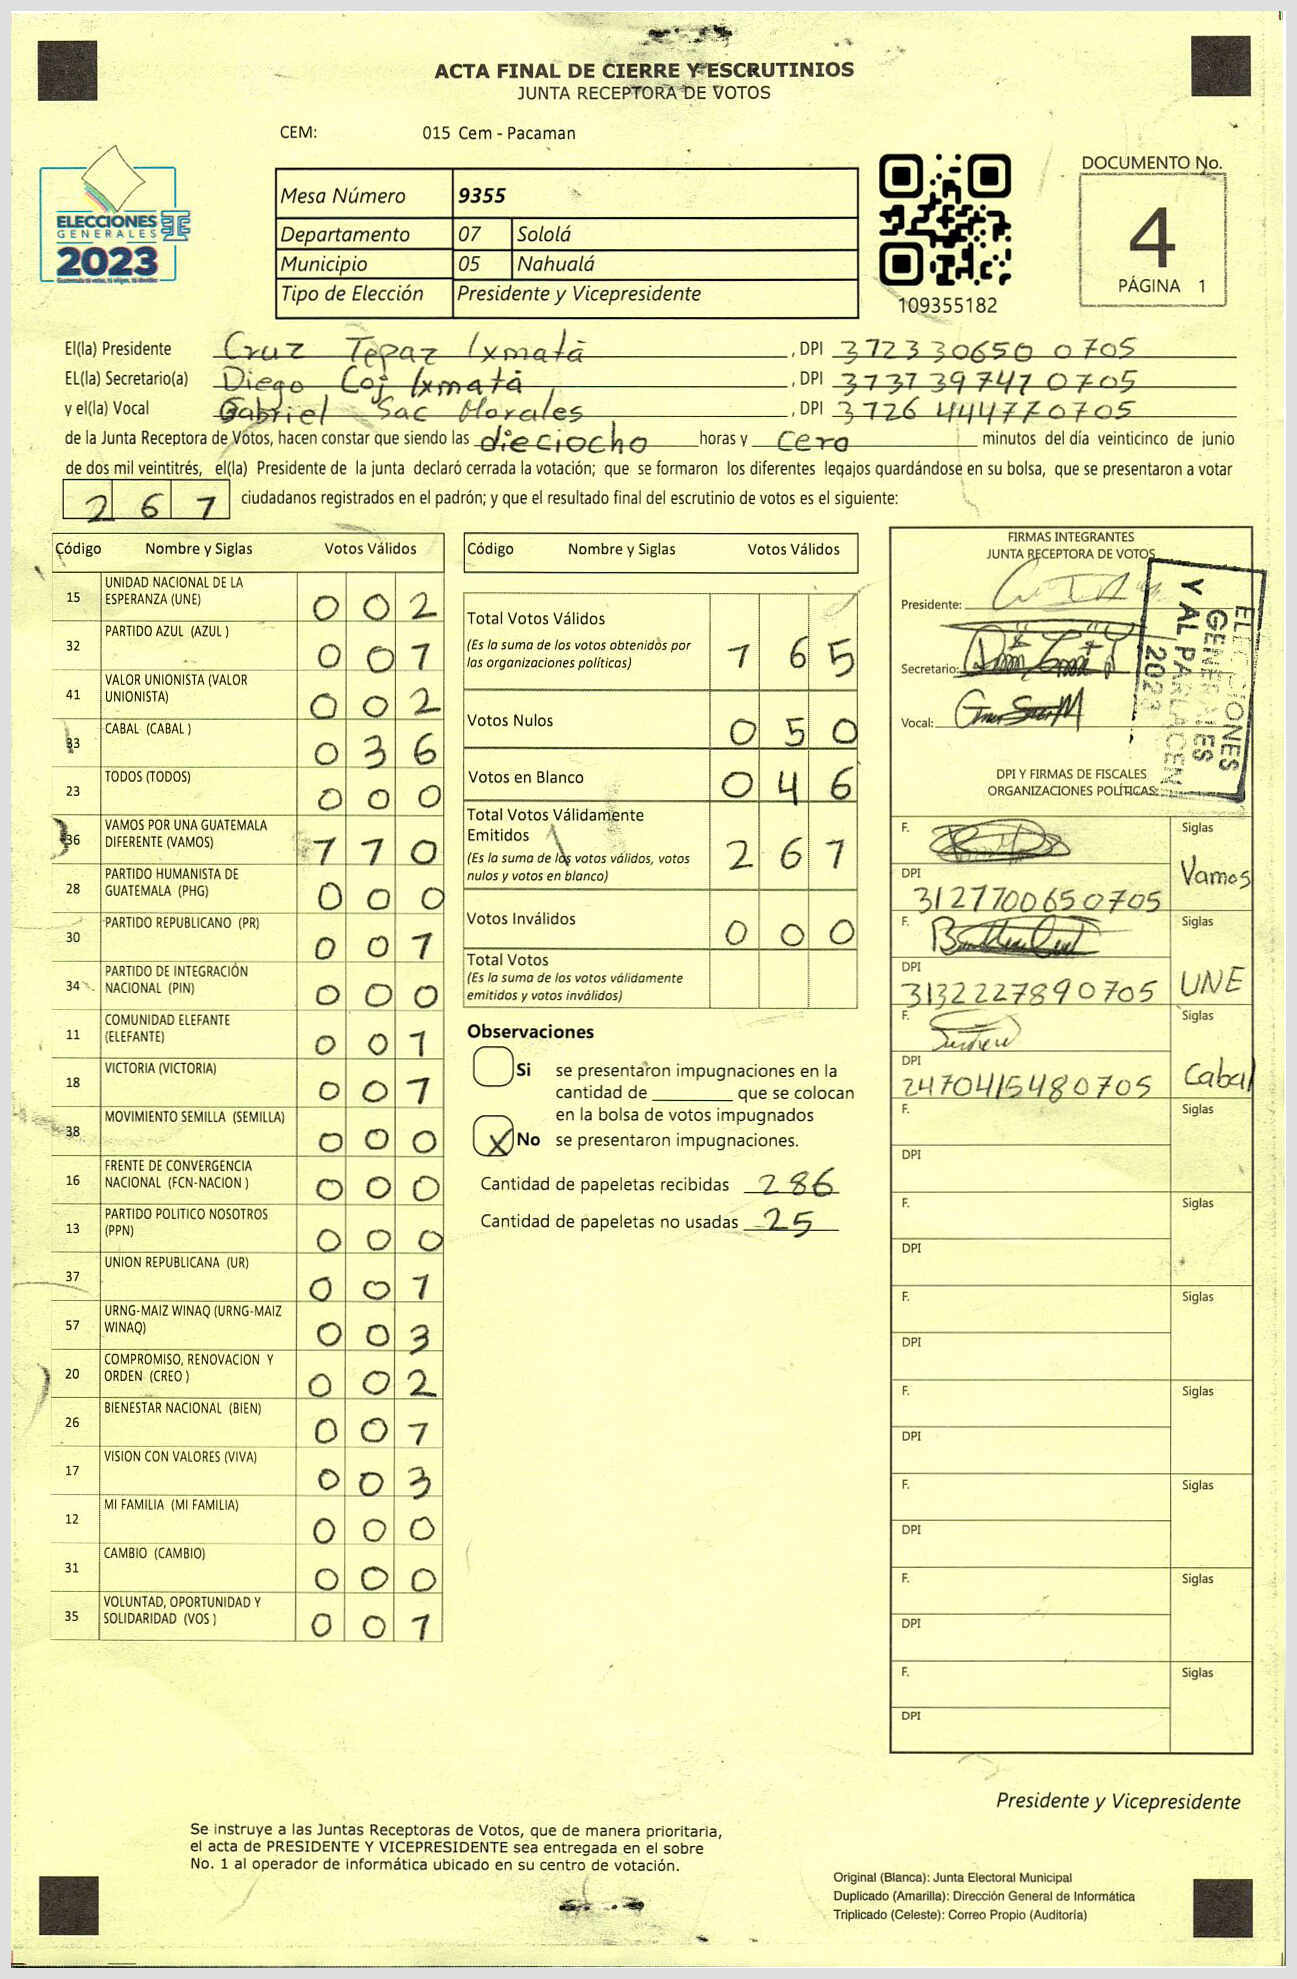 ACTA FINAL DE CIERRE Y ESCRUTINIOS
JUNTA RECEPTORA DE VOTOS
CEM: 015 Cem - Pacaman
ELECCIONES
GENERALES
2023
Mesa Número 9355
Departamento 07 Sololá
Municipio 05 Nahualá
Tipo de Elección Presidente y Vicepresidente
109355182
DOCUMENTO No.
4
PÁGINA 1
El(la) Presidente Cruz Tepaz Ixmatá , DPI 372330650 0705
EL(la) Secretario(a) Diego Coj Ixmatá , DPI 3737397470705
y el(la) Vocal Gabriel Sac Morales , DPI 3726444770705
de la Junta Receptora de Votos, hacen constar que siendo las dieciocho horas y cero minutos del día veinticinco de junio
de dos mil veintitrés, el(la) Presidente de la junta declaró cerrada la votación; que se formaron los diferentes legajos guardándose en su bolsa, que se presentaron a votar
261 ciudadanos registrados en el padrón; y que el resultado final del escrutinio de votos es el siguiente:
Código Nombre y Siglas Votos Válidos
15 UNIDAD NACIONAL DE LA ESPERANZA (UNE) 0 0 2
32 PARTIDO AZUL (AZUL ) 0 0 1
41 VALOR UNIONISTA (VALOR UNIONISTA) 0 0 2
33 CABAL (CABAL ) 0 3 6
23 TODOS (TODOS) 0 0 0
36 VAMOS POR UNA GUATEMALA DIFERENTE (VAMOS) 1 1 0
28 PARTIDO HUMANISTA DE GUATEMALA (PHG) 0 0 0
30 PARTIDO REPUBLICANO (PR) 0 0 1
34 PARTIDO DE INTEGRACIÓN NACIONAL (PIN) 0 0 0
11 COMUNIDAD ELEFANTE (ELEFANTE) 0 0 1
18 VICTORIA (VICTORIA) 0 0 1
38 MOVIMIENTO SEMILLA (SEMILLA) 0 0 0
16 FRENTE DE CONVERGENCIA NACIONAL (FCN-NACION ) 0 0 0
13 PARTIDO POLITICO NOSOTROS (PPN) 0 0 0
37 UNION REPUBLICANA (UR) 0 0 1
57 URNG-MAIZ WINAQ (URNG-MAIZ WINAQ) 0 0 3
20 COMPROMISO, RENOVACION Y ORDEN (CREO ) 0 0 2
26 BIENESTAR NACIONAL (BIEN) 0 0 1
17 VISION CON VALORES (VIVA) 0 0 3
12 MI FAMILIA (MI FAMILIA) 0 0 0
31 CAMBIO (CAMBIO) 0 0 0
35 VOLUNTAD, OPORTUNIDAD Y SOLIDARIDAD (VOS ) 0 0 1
Código Nombre y Siglas Votos Válidos
Total Votos Válidos 1 6 5
(Es la suma de los votos obtenidos por
las organizaciones políticas)
Votos Nulos 0 5 0
Votos en Blanco 0 4 6
Total Votos Válidamente
Emitidos 2 6 1
(Es la suma de los votos válidos, votos
nulos y votos en blanco)
Votos Inválidos 0 0 0
Total Votos
(Es la suma de los votos válidamente
emitidos y votos inválidos)
Observaciones
Si se presentaron impugnaciones en la
cantidad de ________ que se colocan
en la bolsa de votos impugnados
X No se presentaron impugnaciones.
Cantidad de papeletas recibidas 286
Cantidad de papeletas no usadas 25
FIRMAS INTEGRANTES
JUNTA RECEPTORA DE VOTOS
Presidente:
Secretario:
Vocal:
ELECCIONES
GENERALES
Y AL PARLACEN
2023
DPI Y FIRMAS DE FISCALES
ORGANIZACIONES POLÍTICAS
F. Siglas
Vamos
DPI
3127700650705
F. Siglas
DPI UNE
3132227890705
F. Siglas
DPI Cabal
2470415480705
F. Siglas
DPI
F. Siglas
DPI
F. Siglas
DPI
F. Siglas
DPI
F. Siglas
DPI
F. Siglas
DPI
F. Siglas
DPI
Presidente y Vicepresidente
Se instruye a las Juntas Receptoras de Votos, que de manera prioritaria,
el acta de PRESIDENTE Y VICEPRESIDENTE sea entregada en el sobre
No. 1 al operador de informática ubicado en su centro de votación.
Original (Blanca): Junta Electoral Municipal
Duplicado (Amarilla): Dirección General de Informática
Triplicado (Celeste): Correo Propio (Auditoría)